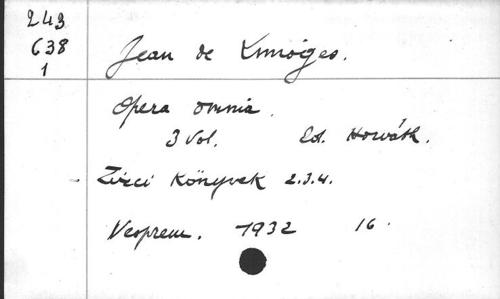 243
638
1
Jean de Limoges.
Opera omnia.
3 Vol. Ed. Horváth.
- Zirci Könyvek 2.3.4.
Veszprem. 1932 16